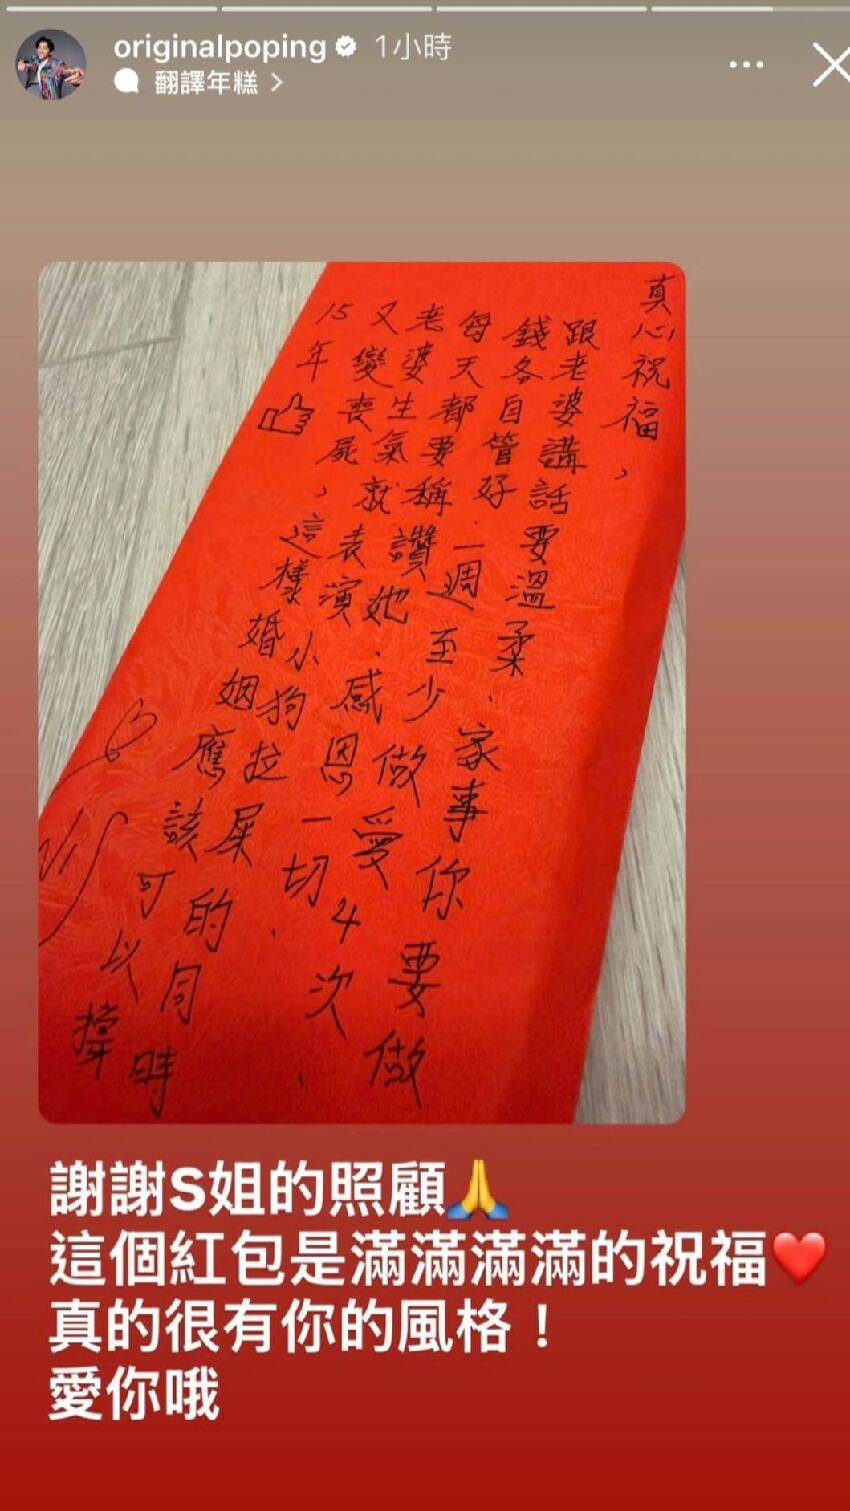 originalpoping 1小時
翻譯年糕 >
真心祝福,
跟老婆講話要溫柔、家事你要做
錢各自管好.一週至少做愛4次、
每天都要稱讚她.感恩一切.
老婆生氣就表演小狗拉屎的同時
又變喪屍,這樣婚姻應該可以撐
15年
謝謝S姐的照顧🙏
這個紅包是滿滿滿滿的祝福❤️
真的很有你的風格！
愛你哦